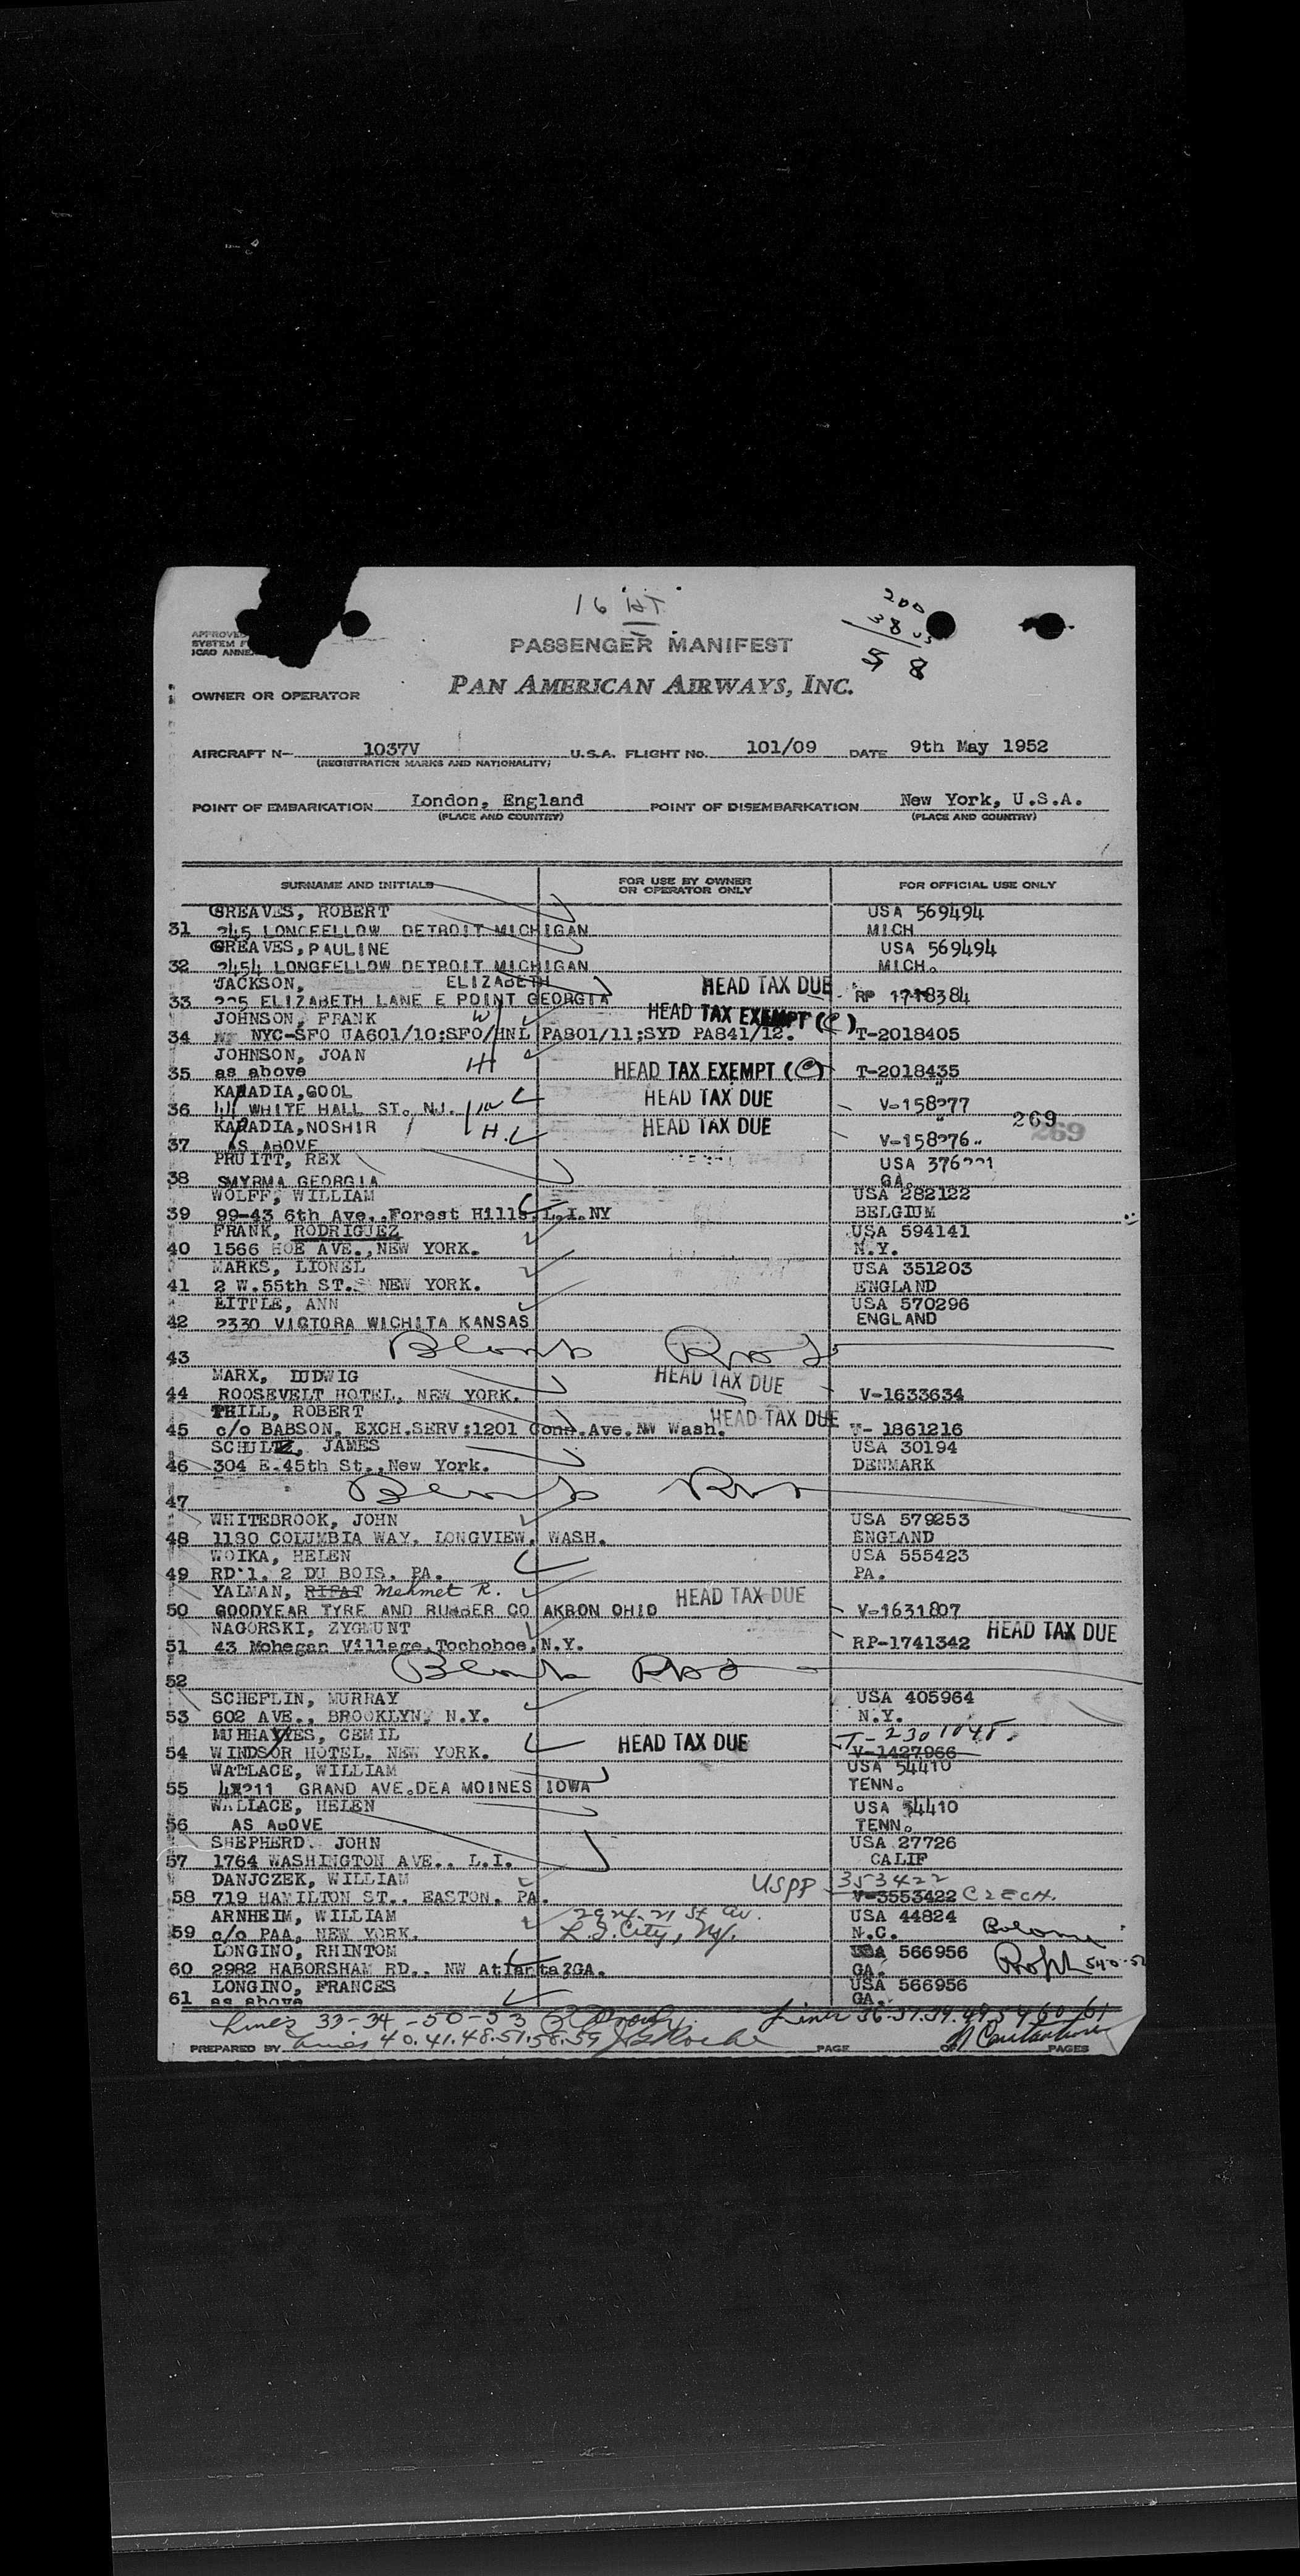 16 HT
200
38
58
APPROVE
SYSTEM F
ICAO ANNE
PASSENGER MANIFEST
PAN AMERICAN AIRWAYS, INC.
OWNER OR OPERATOR
AIRCRAFT N- 1037V U.S.A. FLIGHT No. 101/09 DATE 9th May 1952
(REGISTRATION MARKS AND NATIONALITY)
POINT OF EMBARKATION London, England POINT OF DISEMBARKATION New York, U.S.A.
(PLACE AND COUNTRY) (PLACE AND COUNTRY)
SURNAME AND INITIALS FOR USE BY OWNER OR OPERATOR ONLY FOR OFFICIAL USE ONLY
GREAVES, ROBERT USA 569494
31 245 LONGFELLOW DETROIT MICHIGAN MICH
GREAVES, PAULINE USA 569494
32 2454 LONGFELLOW DETROIT MICHIGAN MICH.
JACKSON, ELIZABETH HEAD TAX DUE
33 225 ELIZABETH LANE E POINT GEORGIA RP 1718384
JOHNSON, FRANK W HEAD TAX EXEMPT (C)
34 NYC-SFO UA601/10;SFO/HNL PA801/11;SYD PA841/12. T-2018405
JOHNSON, JOAN H
35 as above HEAD TAX EXEMPT (C) T-2018435
KAPADIA, GOOL HEAD TAX DUE
36 WHITE HALL ST. NJ. V-158277
KAPADIA, NOSHIR H. HEAD TAX DUE 269 269
37 AS ABOVE V-158276
PRUITT, REX USA 376221
38 SMYRMA GEORGIA GA.
WOLFF, WILLIAM USA 282122
39 99-43 6th Ave., Forest Hills, L.I.NY BELGIUM
FRANK, RODRIGUEZ USA 594141
40 1566 HOE AVE., NEW YORK. N.Y.
MARKS, LIONEL USA 351203
41 2 W.55th ST. NEW YORK. ENGLAND
LITTLE, ANN USA 570296
42 2330 VICTORA WICHITA KANSAS ENGLAND
43
MARX, LUDWIG HEAD TAX DUE
44 ROOSEVELT HOTEL, NEW YORK. V-1633634
THILL, ROBERT HEAD TAX DUE
45 c/o BABSON, EXCH.SERV;1201 Conn.Ave.NW Wash. V- 1861216
SCHULTZ, JAMES USA 30194
46 304 E.45th St., New York. DENMARK
47
WHITEBROOK, JOHN USA 579253
48 1180 COLUMBIA WAY, LONGVIEW, WASH. ENGLAND
WOIKA, HELEN USA 555423
49 RD'1. 2 DU BOIS. PA. PA.
YALMAN, RIFAT Mehmet R. HEAD TAX DUE
50 GOODYEAR TYRE AND RUBBER CO AKRON OHIO V-1631807
NAGORSKI, ZYGMUNT HEAD TAX DUE
51 43 Mohegan Village, Tochohoe, N.Y. RP-1741342
52
SCHEFLIN, MURRAY USA 405964
53 602 AVE., BROOKLYN, N.Y. N.Y.
CEMIL T-2301045.
54 WINDSOR HOTEL, NEW YORK. HEAD TAX DUE V-1427966
WALLACE, WILLIAM USA 54410
55 GRAND AVE. DEA MOINES IOWA TENN.
WALLACE, HELEN USA 54410
56 AS ABOVE TENN.
SHEPHERD. JOHN USA 27726
57 1764 WASHINGTON AVE., L.I. CALIF
DANJCZEK, WILLIAM USPP 353422
58 719 HAMILTON ST., EASTON, PA. V-3553422 CZECH.
ARNHEIM, WILLIAM USA 44824
59 c/o PAA, NEW YORK. L.I. City, N.Y. N.C.
LONGINO, RHINTOM USA 566956
60 2982 HABORSHAM RD., NW Atlanta GA. GA.
LONGINO, FRANCES USA 566956
61 as above GA.
Lines 33-34-50-53
Lines 36.37.39.49.54.60.61
PREPARED BY Lines 40.41.48.51.58.59 PAGE OF PAGES